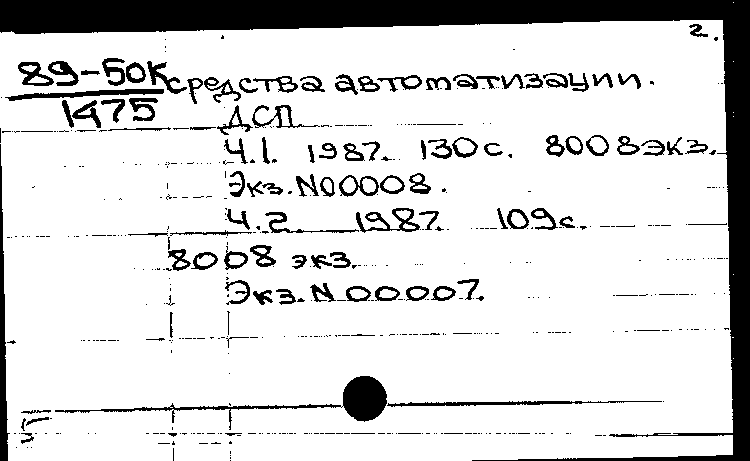 2.
89-50К
1475
средства автоматизации.
ДСП
Ч.1. 1987. 130с. 8008экз.
Экз.N00008.
Ч.2. 1987. 109с.
8008 экз.
Экз.N 00007.